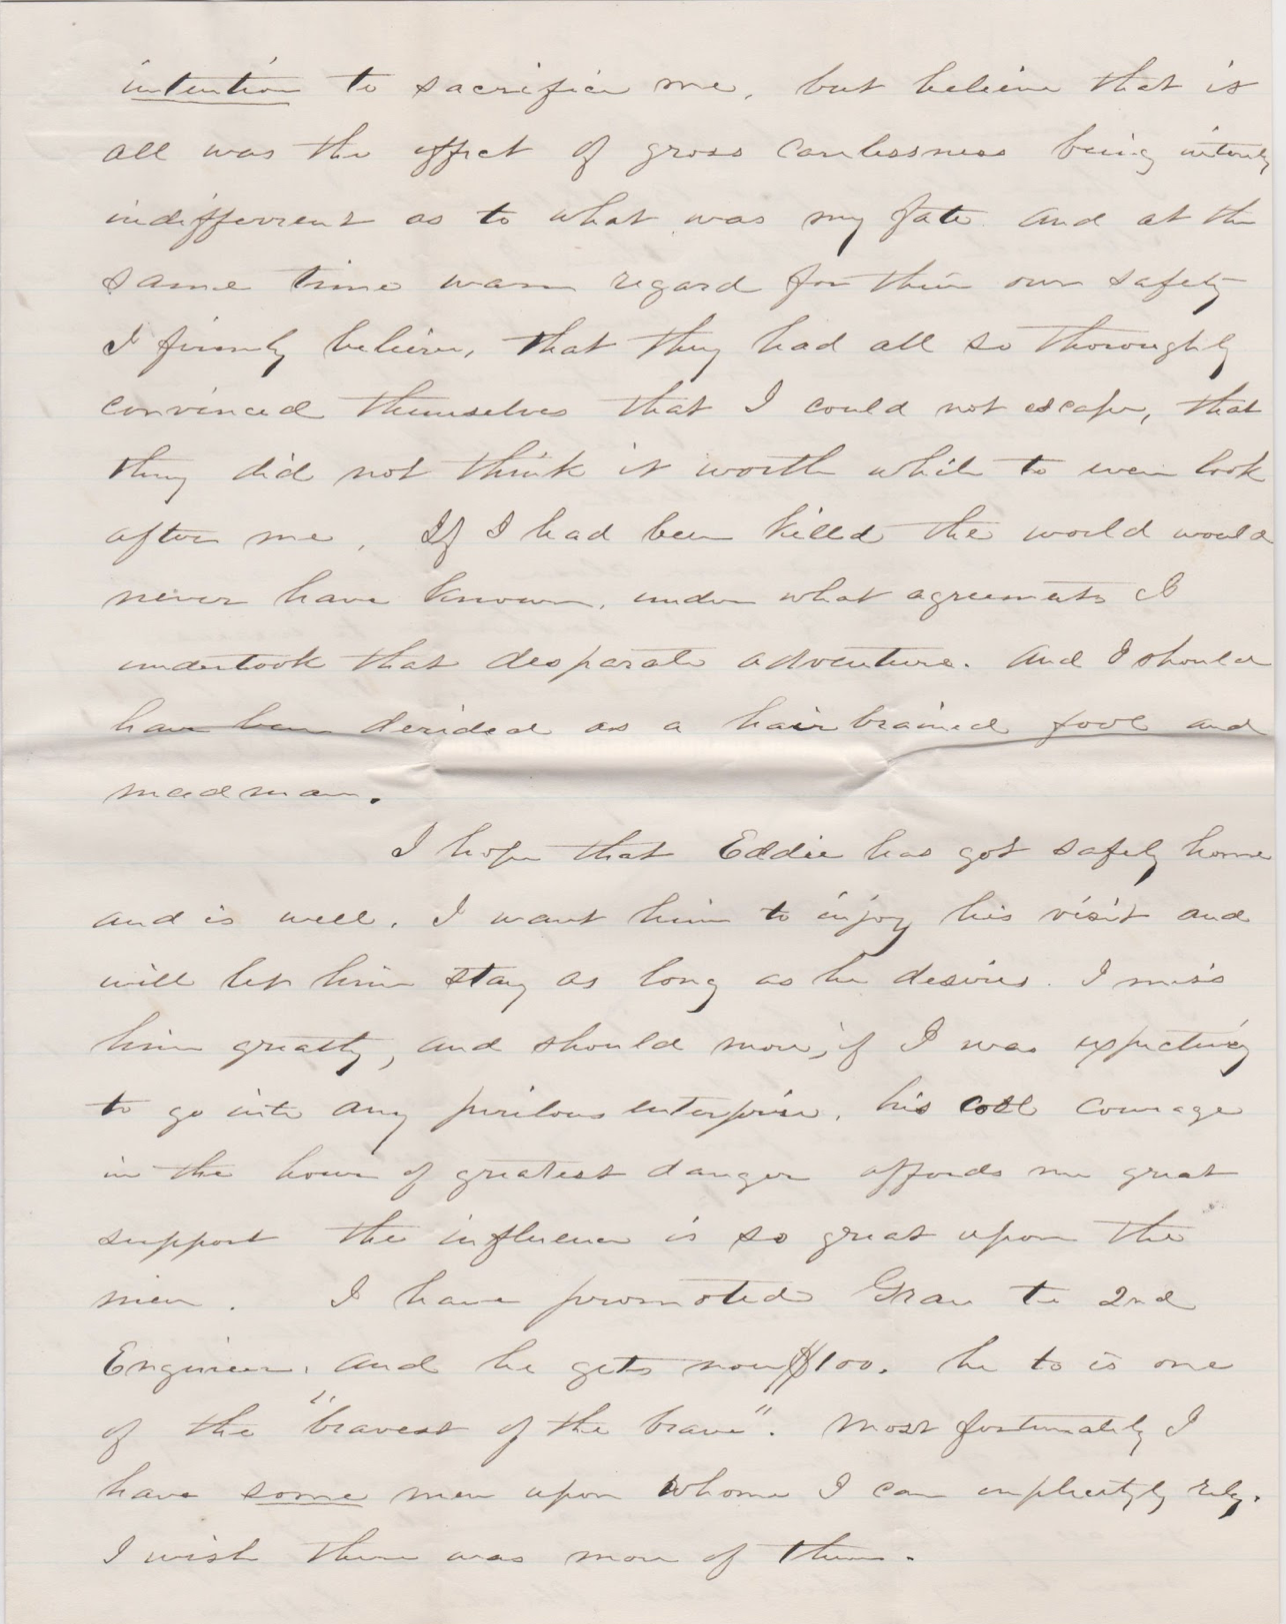 intention to sacrifice me, but believe that it
all was the effect of gross carelessness being utterly
indifferrent as to what was my fate and at the
same time warm regard for their own safety
I firmly believe, that they had all so thoroughly
convinced themselves that I could not escape, that
they did not think it worth while to even look
after me. If I had been killed the world would
never have known, under what agreements I
undertook that desparate adventure. And I should
have been derided as a hair brained fool and
madman.
I hope that Eddie has got safely home
and is well. I want him to injoy his visit and
will let him stay as long as he desires. I miss
him greatly, and should more, if I was expecting
to go into any perilous enterprise, his cool courage
in the hour of greatest danger affords me great
support the influence is so great upon the
men. I have promoted Grau to 2nd
Engineer, and he gets now $100. he to is one
of the "bravest of the brave". Most fortunately I
have some men upon whome I can implicitly rely.
I wish there was more of them.